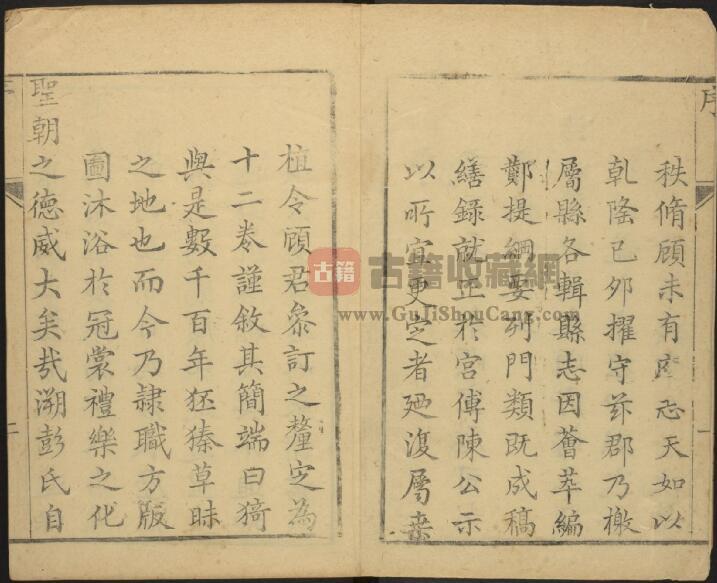 序
秩脩顧未有壂志天如以
乾隆己夘擢守茲郡乃檄
屬縣各輯縣志因薈萃編
鄭提綱要列門類既成稿
繕錄就正於宮傅陳公示
以所宜更定者廼復屬桒
植令頋君叅訂之釐定為
十二卷謹敘其簡端曰猗
與是數千百年狉獉草昧
之地也而今乃隷職方版
圖沐浴於冠裳禮樂之化
聖朝之德威大矣哉溯彭氏自
二
古籍
古籍收藏網
www.GuJiShouCang.com